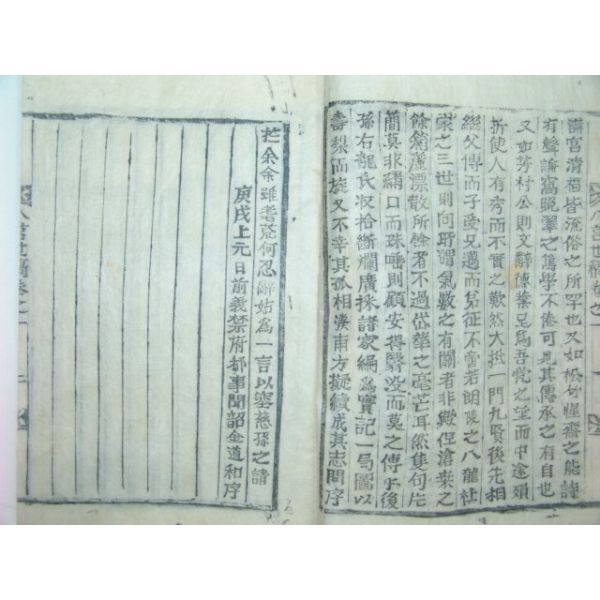 淸宮淸福皆流俗之所罕也又如松旬惺齋之能詩
有聲諭窩晩翠之篤學不倦可見其傳承之有自也
又如芳村公則文辭德業兄爲吾黨之望而中途隕
折使人有秀而不實之歎然大抵一門九賢後先相
繼父傳而子受兄邁而弟征不啻若朗陵之八龍杜
家之三世則向所謂氣數之有關者非歟但滄桑之
餘篇蕙漂散所餘者不過岱華之毫芒耳然隻句片
簡莫非繡口而珠唾則顧安得翳沒而莫之傳乎後
孫右龍氏收拾斷爛廣採諸家編爲實記一局圖以
壽梨而旋又不幸其孤相洙甫方擬續成其志問序
於余余雖耄荒何忍辭姑爲一言以塞慈孫之請
庚戌上元日前義禁府都事聞韶金道和序
八 世稿卷之一
八 世稿卷之一